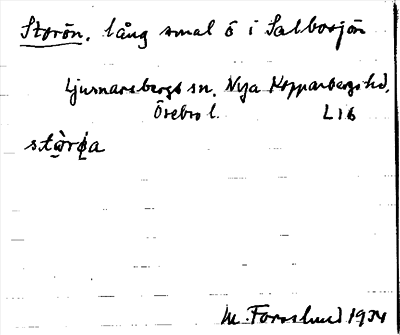 Storön, lång smal ö i Salbosjön
Ljusnarsbergs sn. Nya Kopparbergs hd.
Örebro l. L16
M. Forsslund 1934